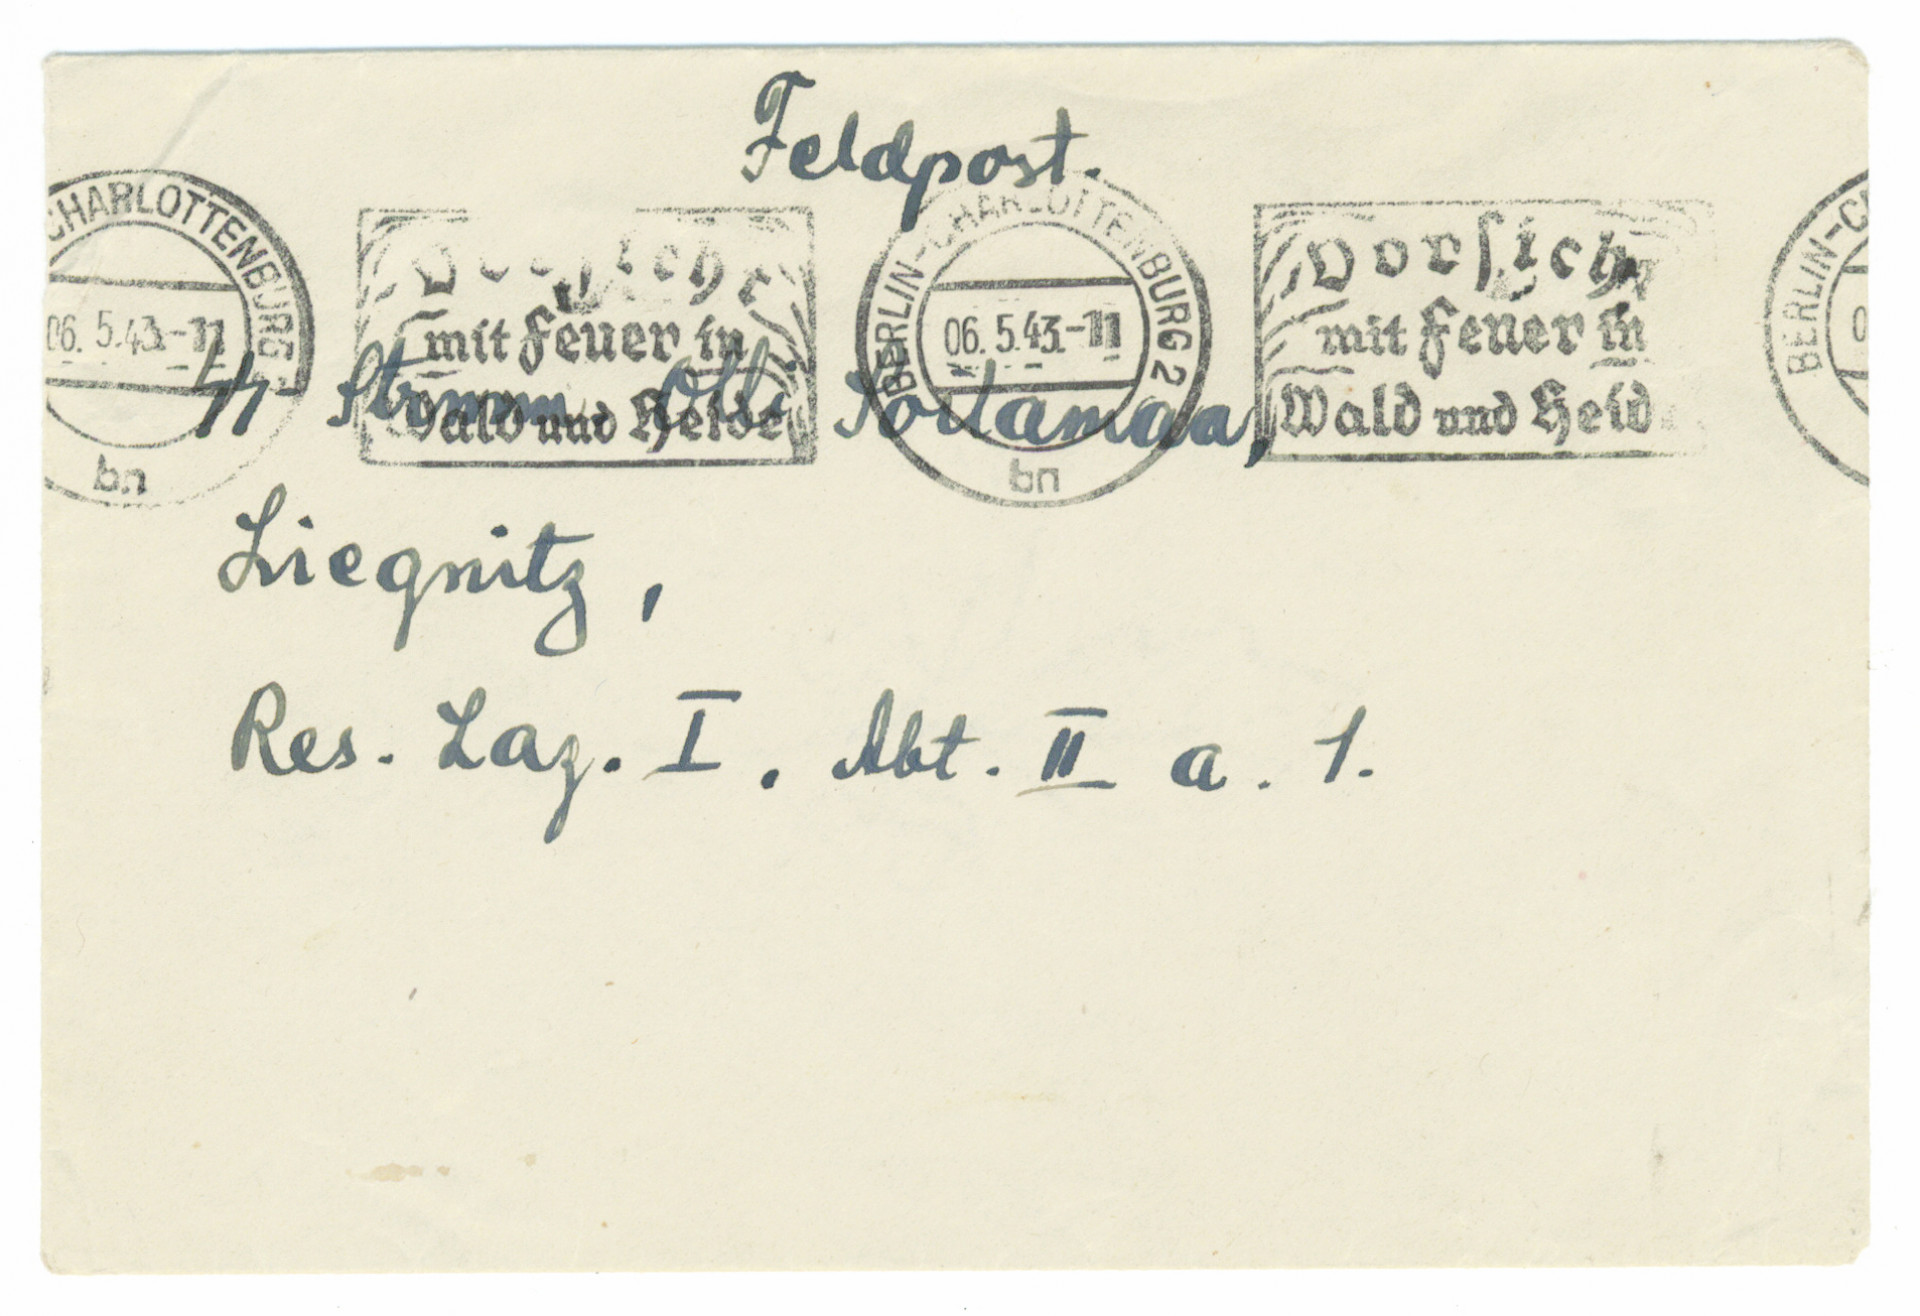 Feldpost.
CHARLOTTENBURG
06.5.43.-11
bn
mit Feuer in
Wald und Heide
BERLIN-CHARLOTTENBURG 2
06.5.43.-11
bn
Vorsicht
mit Feuer in
Wald und Heide
BERLIN-C
0
Liegnitz,
Res. Laz. I. Abt. II a. 1.